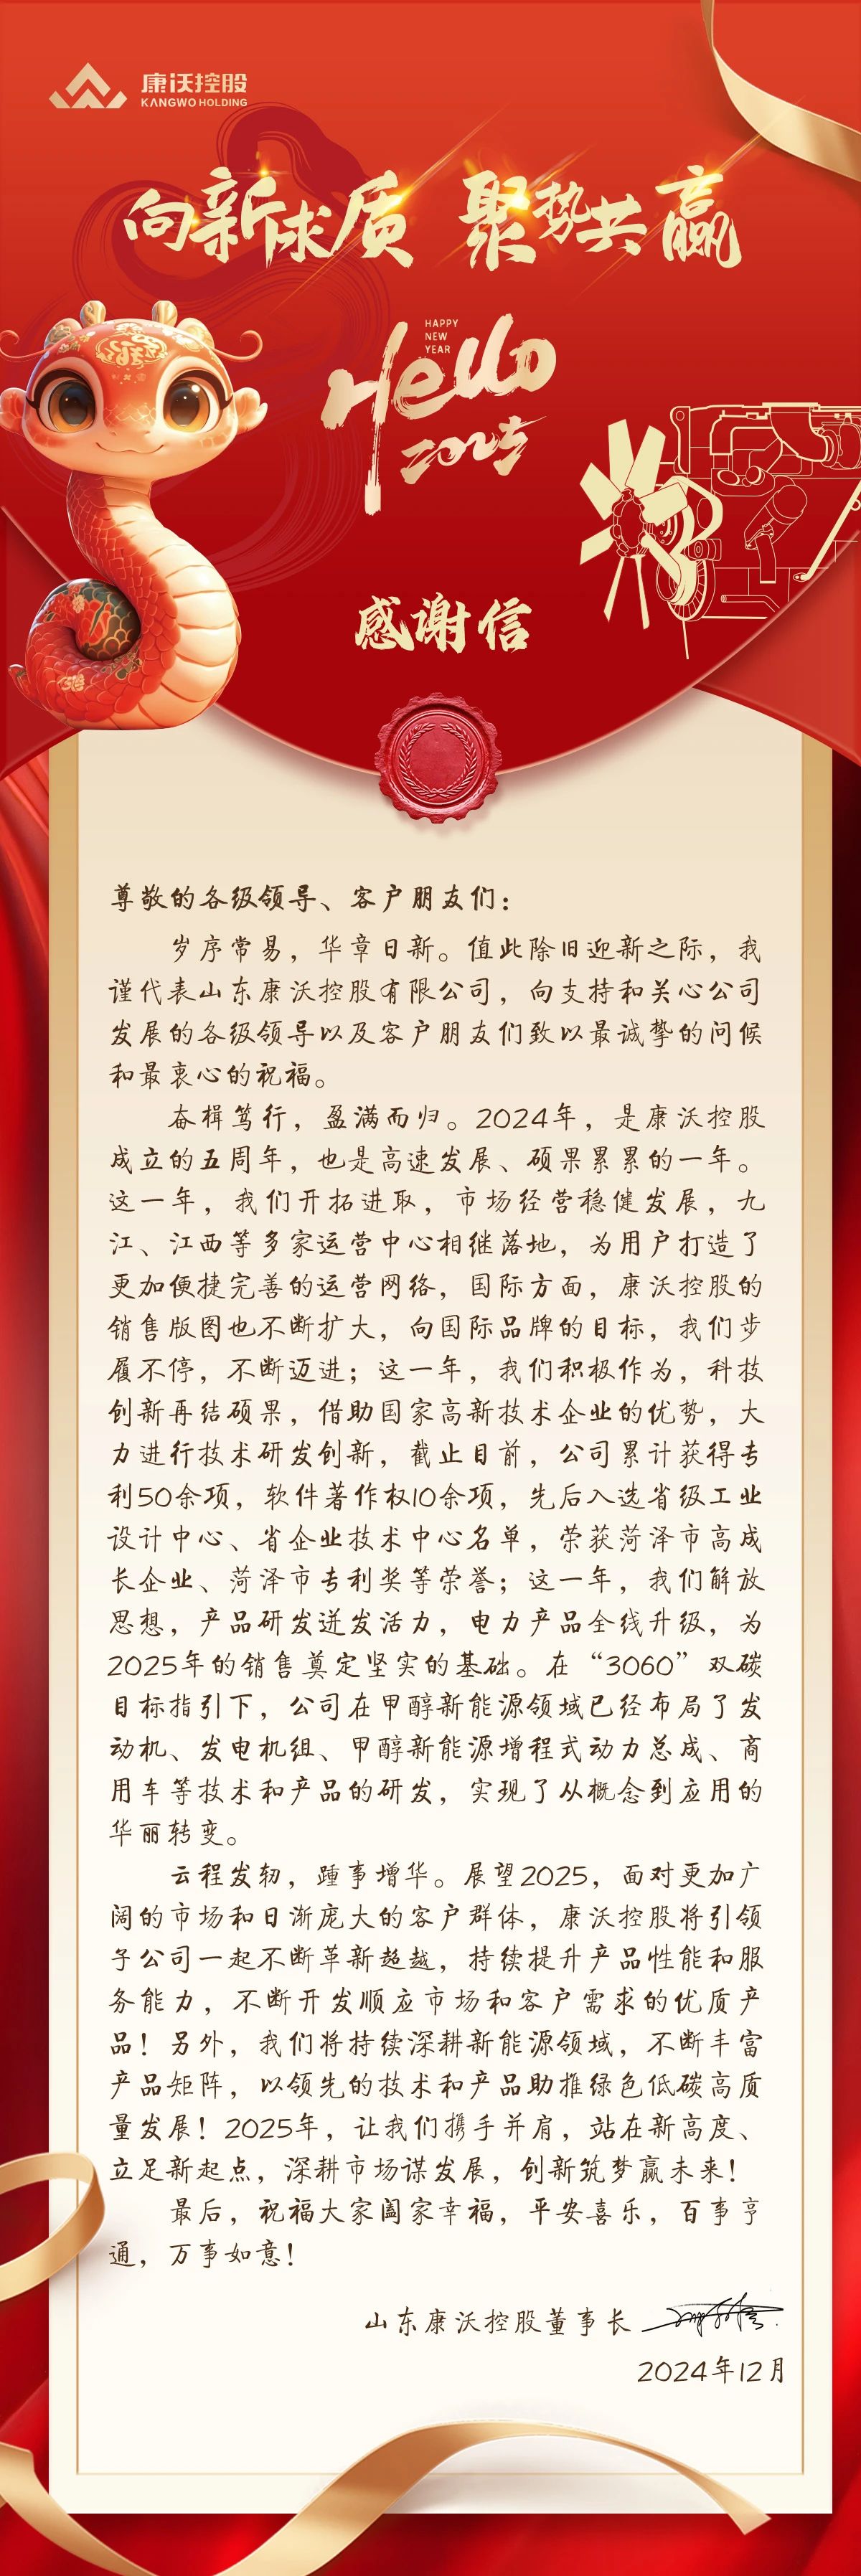 康沃控股
KANGWO HOLDING
向新求质 聚势共赢
HAPPY
NEW
YEAR
Hello
2025
感谢信
尊敬的各级领导、客户朋友们：
岁序常易，华章日新。值此除旧迎新之际，我
谨代表山东康沃控股有限公司，向支持和关心公司
发展的各级领导以及客户朋友们致以最诚挚的问候
和最衷心的祝福。
奋楫笃行，盈满而归。2024年，是康沃控股
成立的五周年，也是高速发展、硕果累累的一年。
这一年，我们开拓进取，市场经营稳健发展，九
江、江西等多家运营中心相继落地，为用户打造了
更加便捷完善的运营网络，国际方面，康沃控股的
销售版图也不断扩大，向国际品牌的目标，我们步
履不停，不断迈进；这一年，我们积极作为，科技
创新再结硕果，借助国家高新技术企业的优势，大
力进行技术研发创新，截止目前，公司累计获得专
利50余项，软件著作权10余项，先后入选省级工业
设计中心、省企业技术中心名单，荣获菏泽市高成
长企业、菏泽市专利奖等荣誉；这一年，我们解放
思想，产品研发迸发活力，电力产品全线升级，为
2025年的销售奠定坚实的基础。在“3060”双碳
目标指引下，公司在甲醇新能源领域已经布局了发
动机、发电机组、甲醇新能源增程式动力总成、商
用车等技术和产品的研发，实现了从概念到应用的
华丽转变。
云程发轫，踵事增华。展望2025，面对更加广
阔的市场和日渐庞大的客户群体，康沃控股将引领
子公司一起不断革新超越，持续提升产品性能和服
务能力，不断开发顺应市场和客户需求的优质产
品！另外，我们将持续深耕新能源领域，不断丰富
产品矩阵，以领先的技术和产品助推绿色低碳高质
量发展！2025年，让我们携手并肩，站在新高度、
立足新起点，深耕市场谋发展，创新筑梦赢未来！
最后，祝福大家阖家幸福，平安喜乐，百事亨
通，万事如意！
山东康沃控股董事长
2024年12月